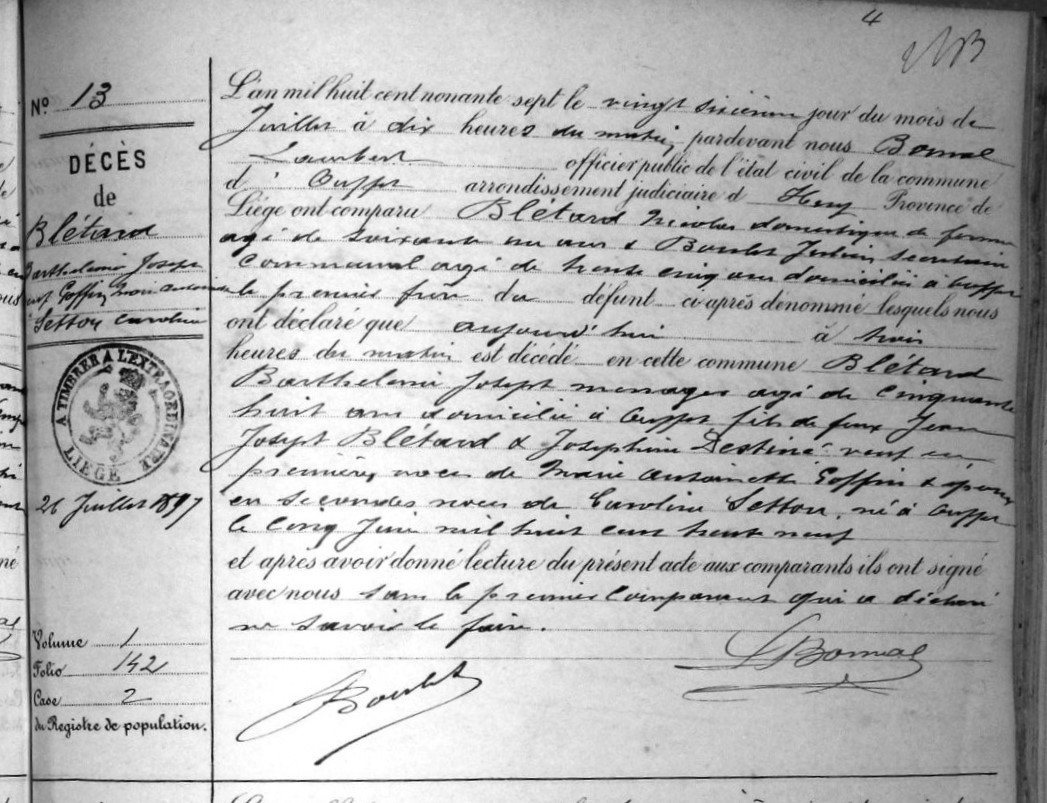 4
N° 13
DÉCÈS
de
Blétard
Barthelemi Joseph
Goffin Marie Antoinette
Setton Caroline
A TIMBRER A L'EXTRAORDINAIRE
LIÈGE
26 Juillet 1897
Volume 1
Folio 142
Case 2
du Registre de population.
L'an mil huit cent nonante sept le vingt sixième jour du mois de
Juillet à dix heures du matin, pardevant nous Bomal
Lambert officier public de l'état civil de la commune
d'Ouffet arrondissement judiciaire d Huy Province de
Liége ont comparu Blétard Nicolas domestique de ferme
agé de soixante un ans & Boulet secretaire
communal agé de trente cinq ans domiciliés à Ouffet
le premier frère du défunt ci-après dénommé lesquels nous
ont déclaré que aujourd'hui à trois
heures du matin est décédé en cette commune Blétard
Barthelemi Joseph menager agé de cinquante
huit ans domicilié à Ouffet fils de feux Jean
Joseph Blétard & Josephine Destiné veuf en
premières noces de Marie Antoinette Goffin & époux
en secondes noces de Caroline Setton, né à Ouffet
le cinq Juin mil huit cent trente neuf
et après avoir donné lecture du présent acte aux comparants ils ont signé
avec nous sauf le premier comparant qui a déclaré
ne savoir le faire.
LBomal
JBoulet